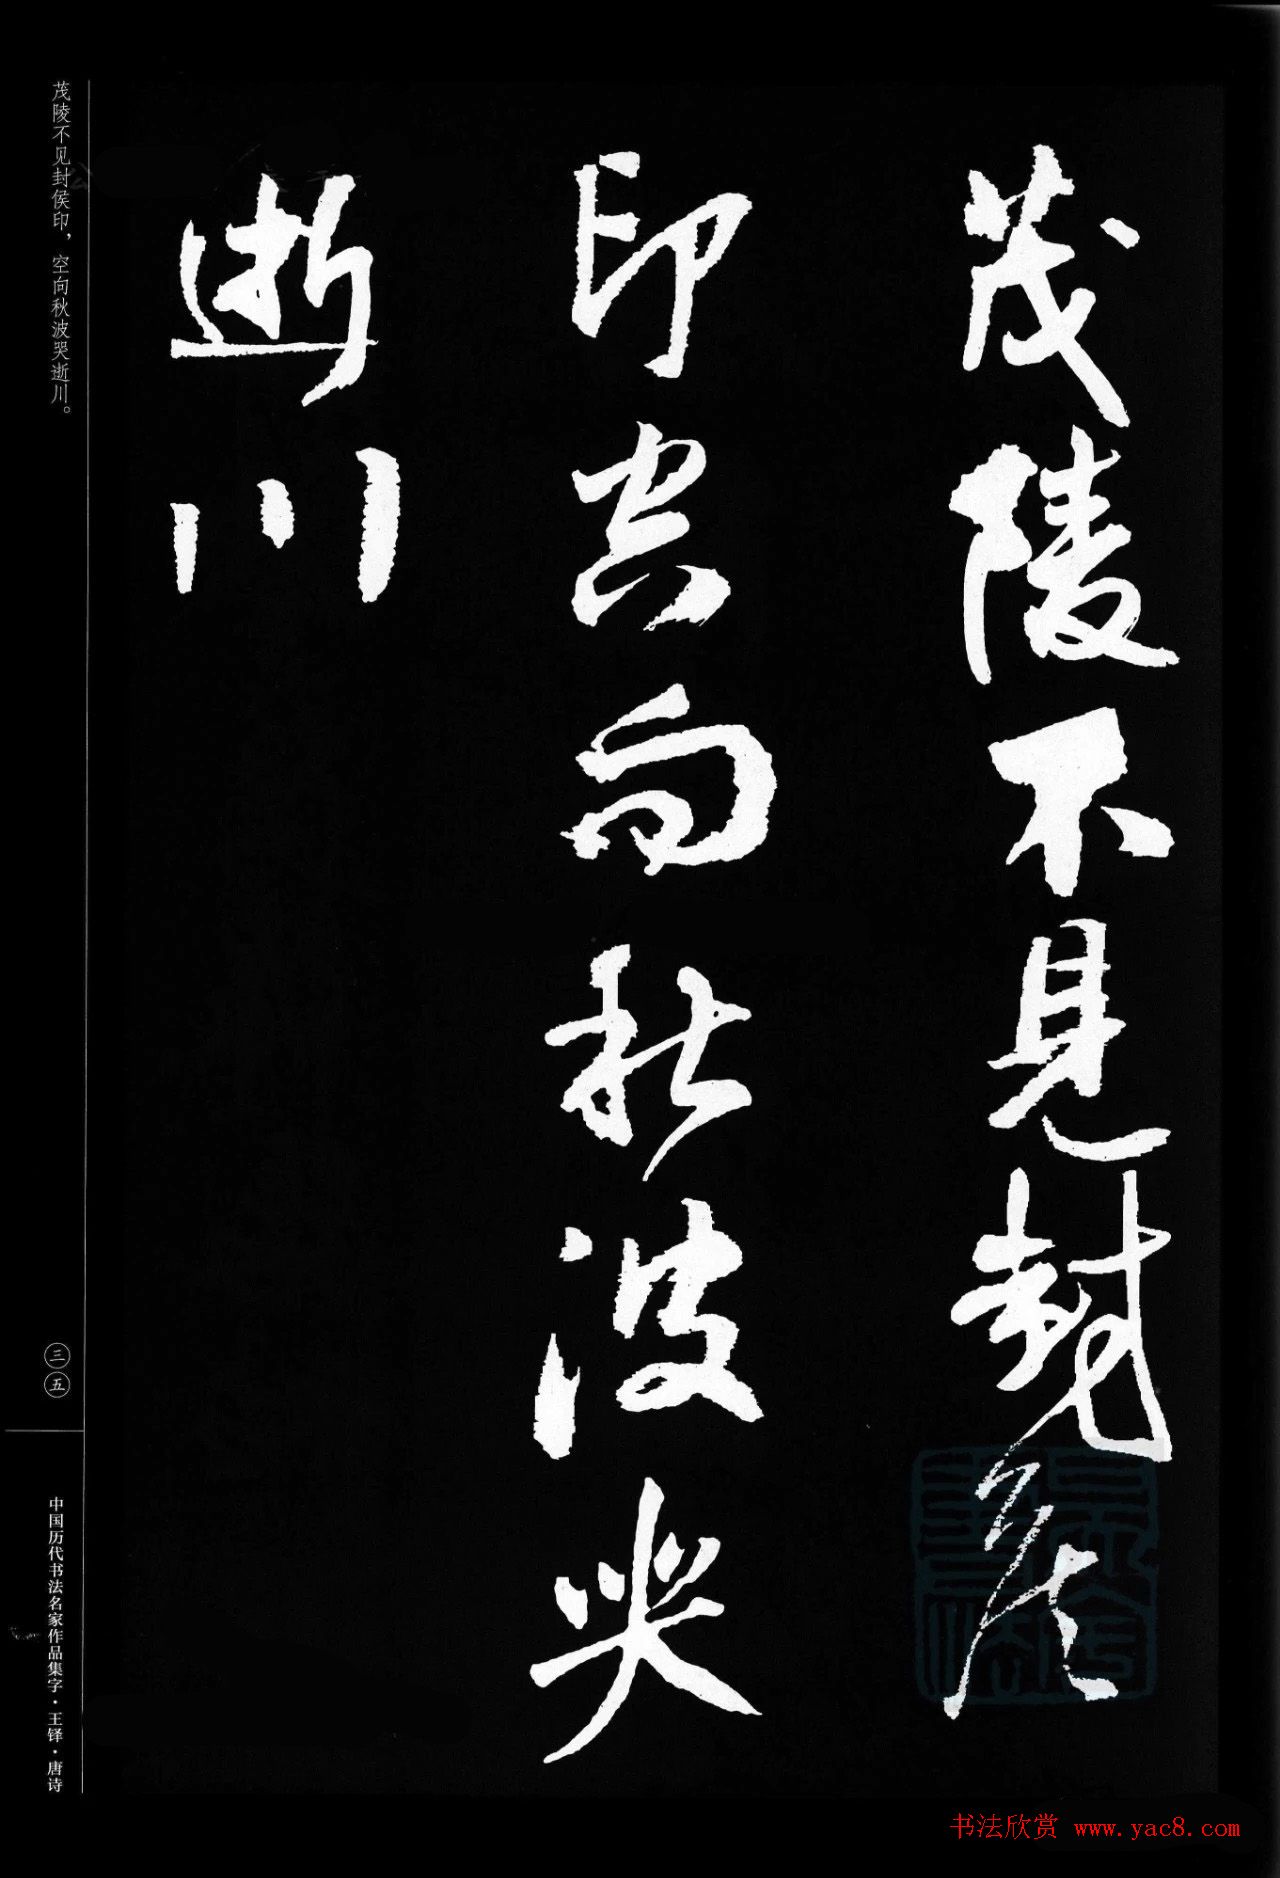 茂陵不見封侯
印空向秋波哭
逝川
茂陵不见封侯印，空向秋波哭逝川。
三五
中国历代书法名家作品集字·王铎·唐诗
书法欣赏 www.yac8.com